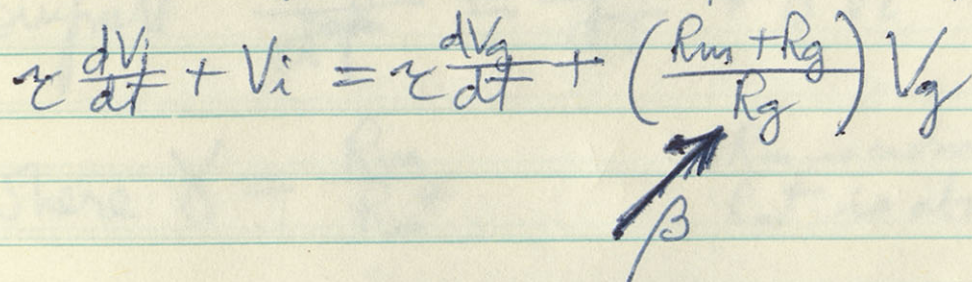 τ dVi/dt + Vi = τ dVg/dt + ((Rm + Rg)/Rg) Vg
β